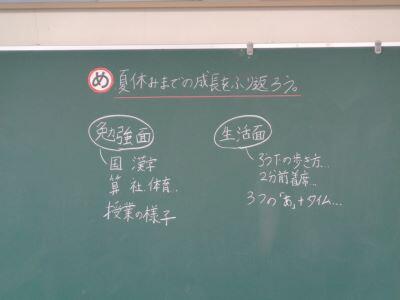 め 夏休みまでの成長をふり返ろう。
勉強面
国 漢字
算 社 体育..
授業の様子
生活面
ろう下の歩き方...
2分前着席..
3つの「あ」+タイム...